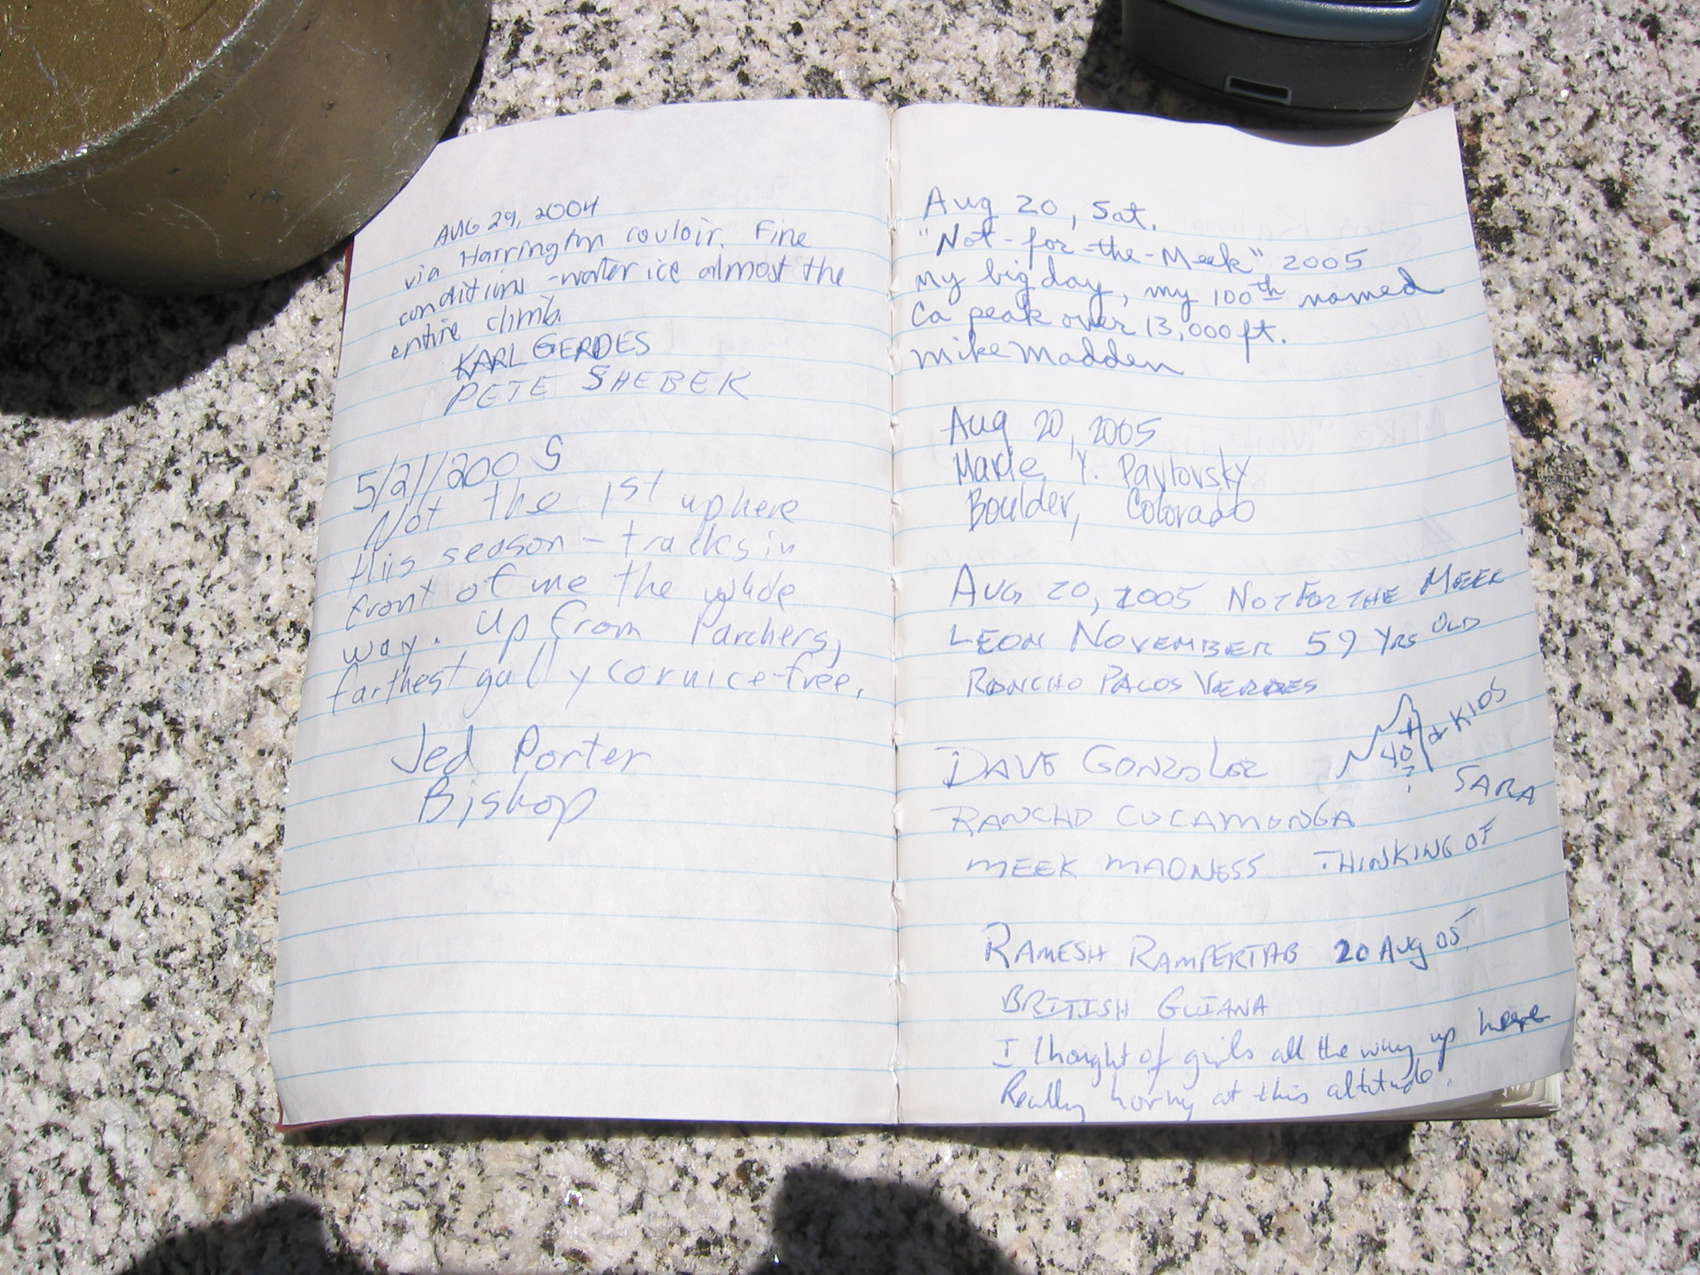 AUG 29, 2004
via Harrington couloir. Fine
conditions - water ice almost the
entire climb.
KARL GERDES
PETE SHEBEK
5/21/2005
Not the 1st up here
this season - tracks in
front of me the whole
way. Up from Parchers,
farthest gully cornice-free.
Jed Porter
Bishop
Aug 20, Sat.
"Not-for-the-Meek" 2005
my big day, my 100th named
Ca peak over 13,000 ft.
Mike Madden
Aug 20, 2005
Y. Pavlovsky
Boulder, Colorado
AUG 20, 2005 NOT FOR THE MEEK
LEON NOVEMBER 59 YRS OLD
RANCHO PALOS VERDES
DAVE GONZALEZ
40?
& KIDS
SARA
RANCHO CUCAMONGA
MEEK MADNESS THINKING OF
RAMESH RAMPERTAB 20 Aug 05
BRITISH GUIANA
I thought of girls all the way up here
Really horny at this altitude.